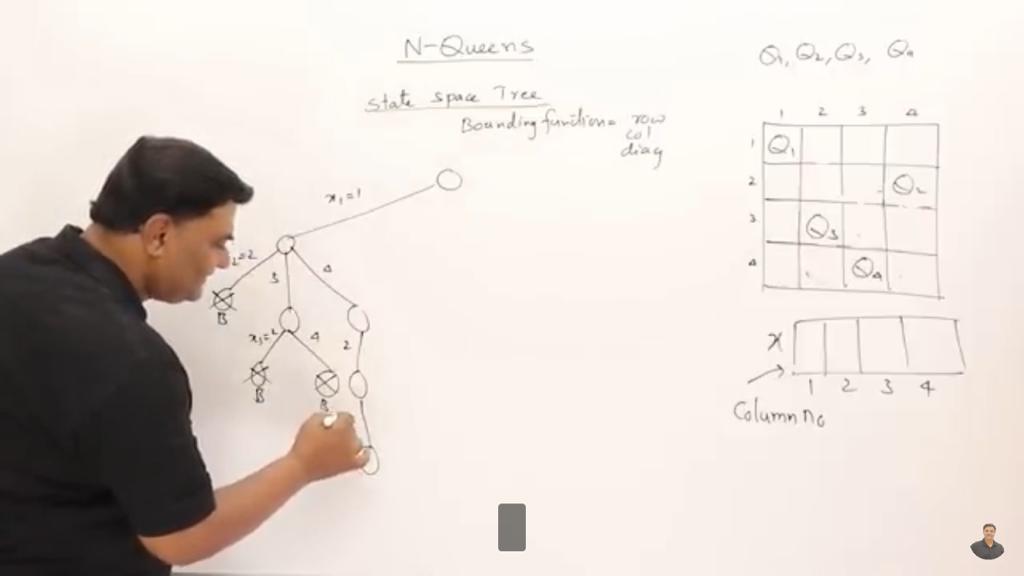 N-Queens
State Space Tree
Bounding function = row
col
diag
x₁=1
₂=2
3
4
B
x₃=2
4
2
B
B
Q₁, Q₂, Q₃, Q₄
1 2 3 4
1 Q₁
2 Q₂
3 Q₃
4 Q₄
x
1 2 3 4
Column no